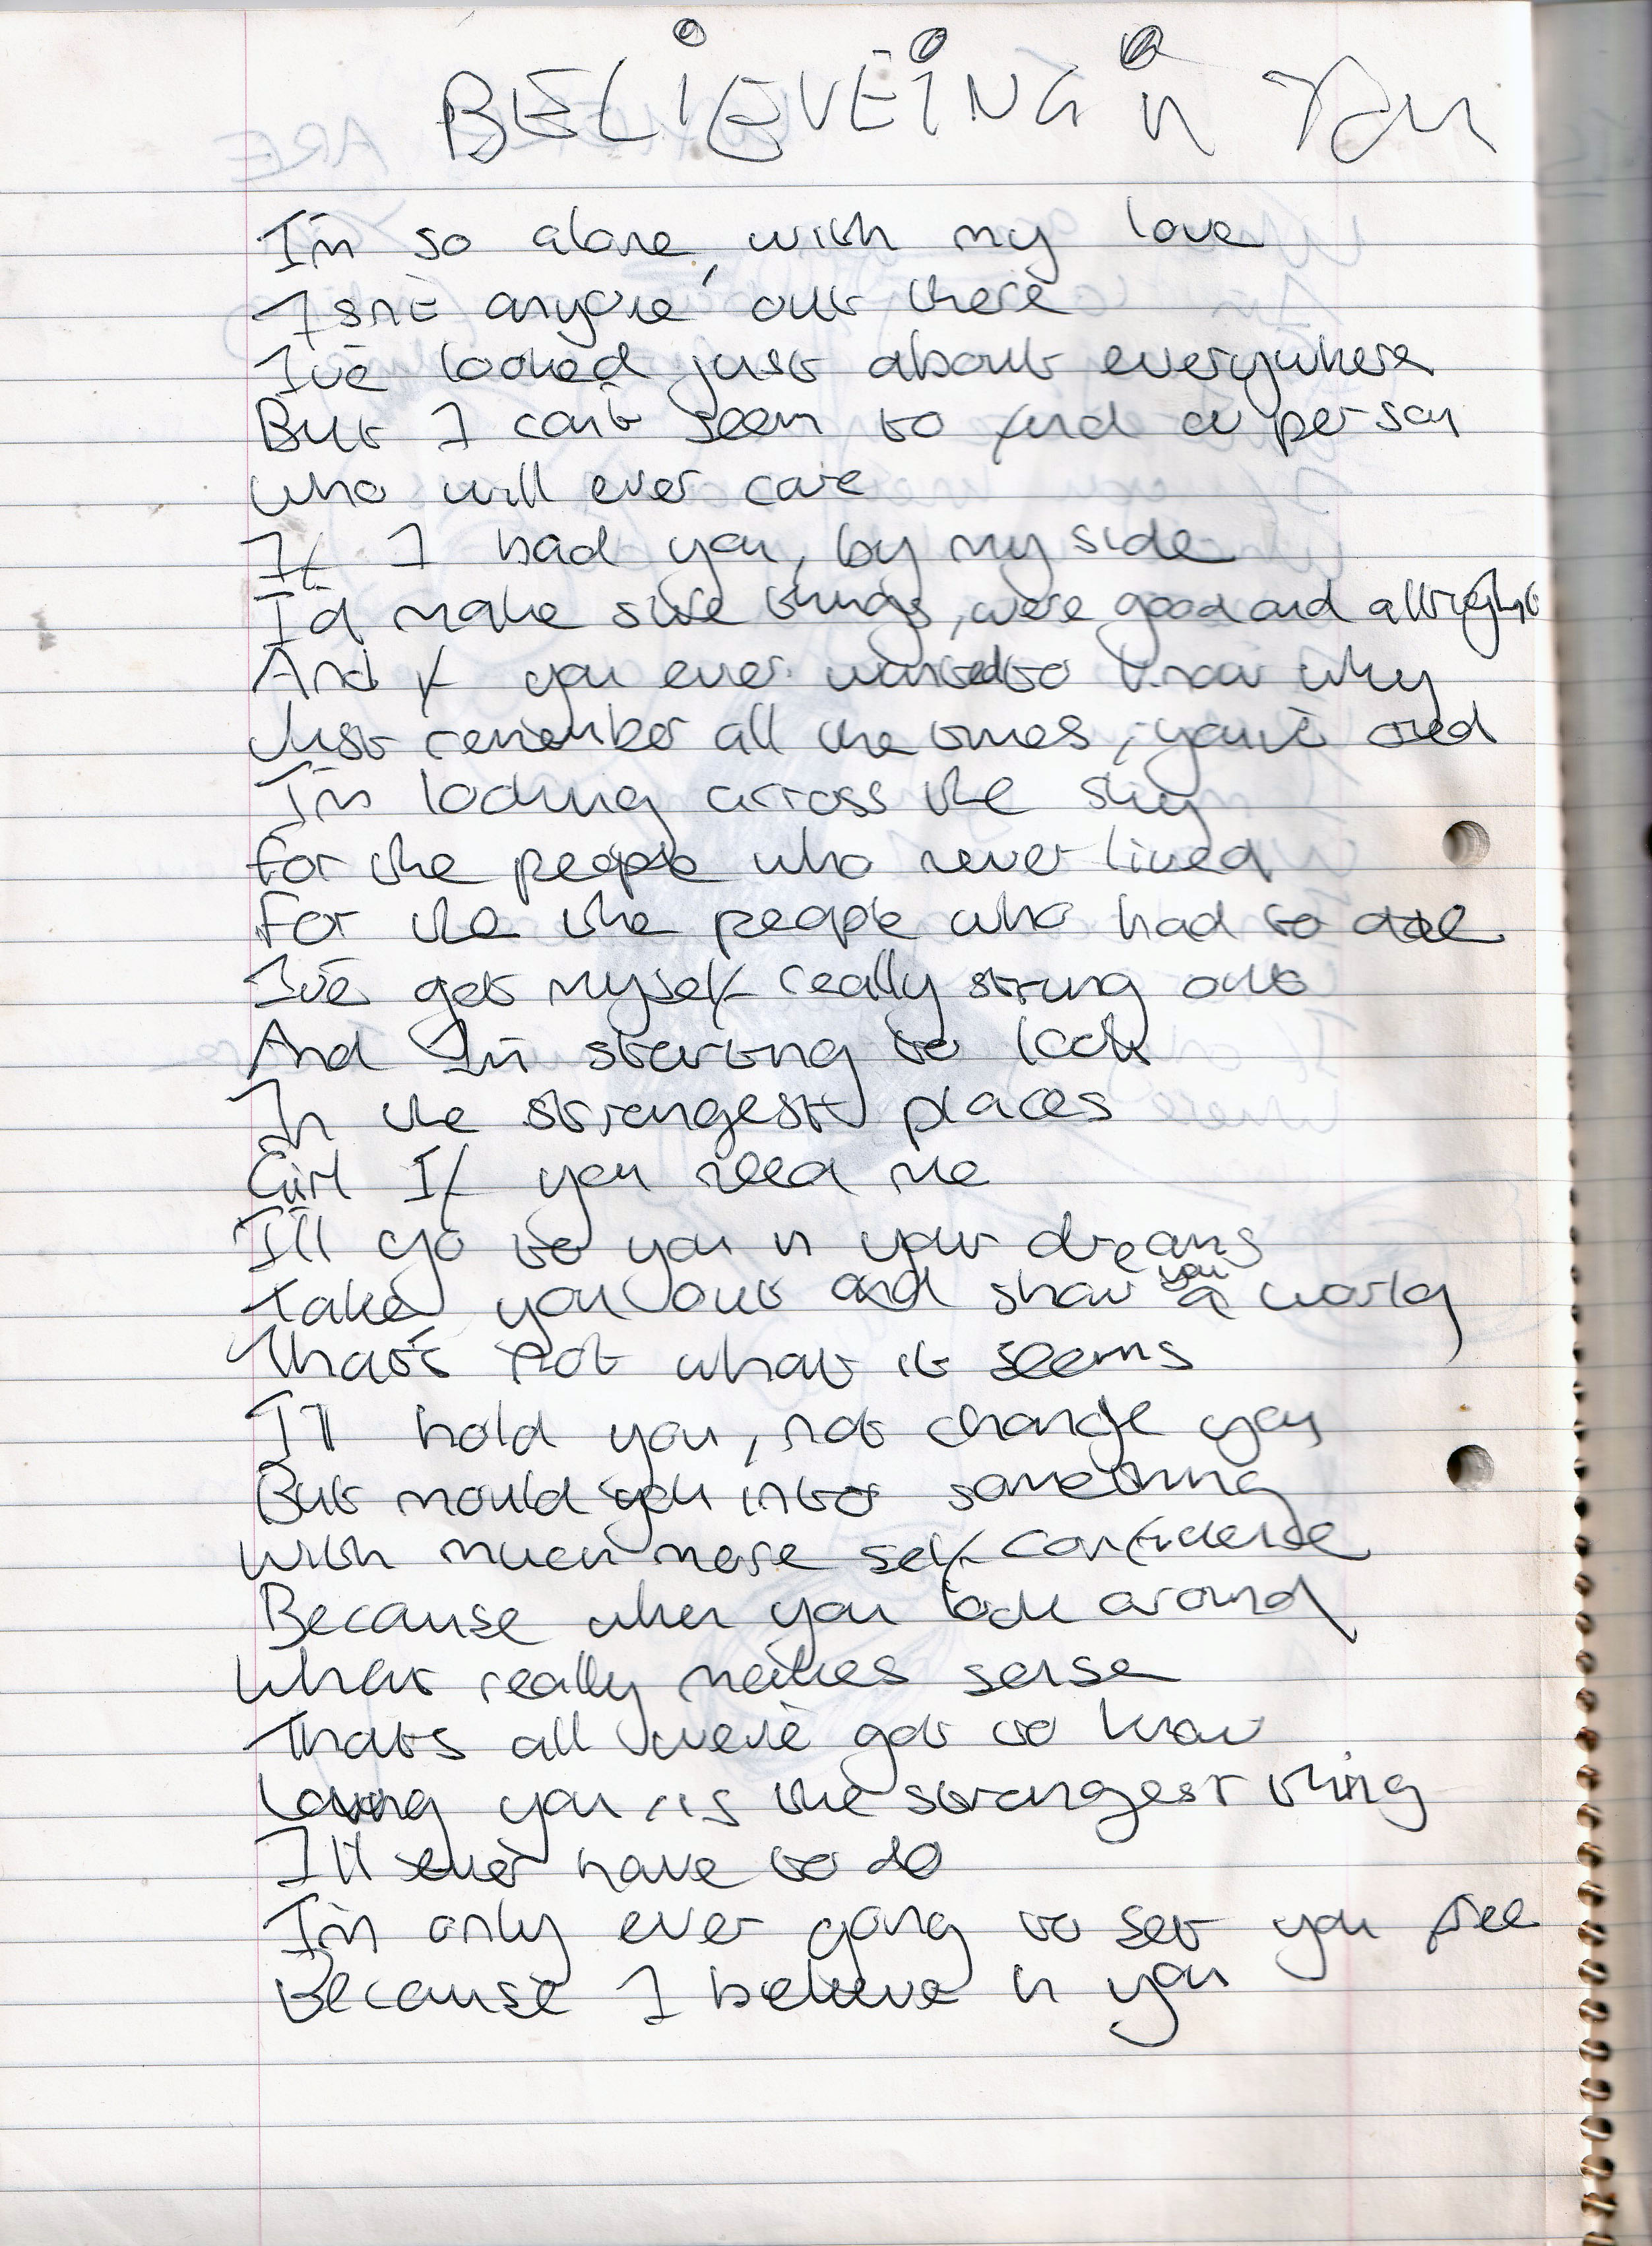 BELIEVEING in You
I'm so alone, with my love
Isn't anyone out there
I've looked just about everywhere
But I can't seem to find a person
who will ever care
If I had you, by my side
I'd make sure things, were good and allright
And if you ever wanted to know why
Just remember all the times, you've
I'm looking across the sky
for the people who never lived
For the the people who had to
I've got myself really strung out
And I'm starting to look
In the strangest places
Girl If you need me
I'll go to you in your dreams
Take you out and show you a world
That's not what it seems
I'll hold you, not change you
But mould you into something
with much more self confidence
Because when you look around
What really makes sense
Thats all we've got to know
Loving you, is the strangest thing
I'll ever have to do
I'm only ever going to set you free
Because I believe in you